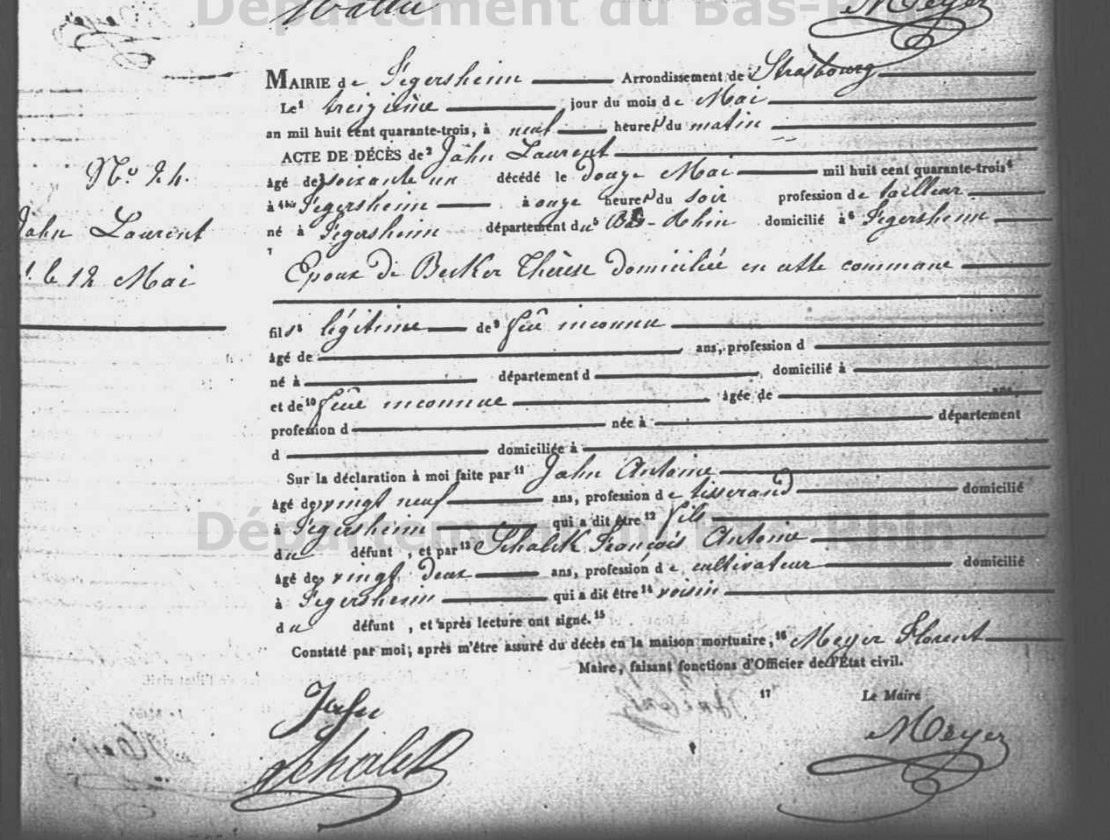 Département du Bas-Rhin
Meyer
MAIRIE de Fegersheim Arrondissement de Strasbourg
Le¹ treizième jour du mois de Mai
an mil huit cent quarante-trois, à neuf heures du matin
ACTE DE DÉCÈS de² Jahn Laurent
âgé de³ soixante un décédé le douze Mai mil huit cent quarante-trois⁴
à⁴ᵇⁱˢ Fegersheim à onze heures du soir profession de tailleur
né à Fegersheim département du⁵ Bas-Rhin domicilié à⁶ Fegersheim
⁷ Epoux de Becker Thérèse domiciliée en cette commune
Nº 24.
Jahn Laurent
le 12 Mai
fils⁸ légitime de⁹ feu inconnu
âgé de ans, profession d
né à département d , domicilié à
et de¹⁰ feue inconnue âgée de ans,
profession d née à département
d domiciliée à
Sur la déclaration à moi faite par¹¹ Jahn Antoine
âgé de vingt neuf ans, profession de tisserand domicilié
à Fegersheim qui a dit être¹² fils
du défunt , et par¹³ Schalck François Antoine
âgé de vingt deux ans, profession de cultivateur domicilié
à Fegersheim qui a dit être¹⁴ voisin
du défunt , et après lecture ont signé.¹⁵
Constaté par moi, après m'être assuré du décès en la maison mortuaire,¹⁶ Meyer Florent
Maire, faisant fonctions d'Officier de l'État civil.
¹⁷ Le Maire
Jahn
Schalck
Meyer
Département du Bas-Rhin